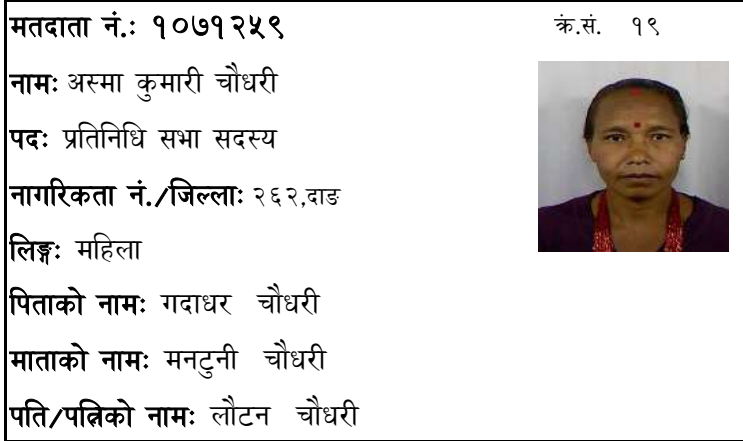 मतदाता नं.: १०७१२५९ क्रं.सं. १९
नामः अस्मा कुमारी चौधरी
पदः प्रतिनिधि सभा सदस्य
नागरिकता नं./जिल्लाः २६२,दाङ
लिङ्गः महिला
पिताको नामः गदाधर चौधरी
माताको नामः मनटुनी चौधरी
पति/पत्निको नामः लौटन चौधरी